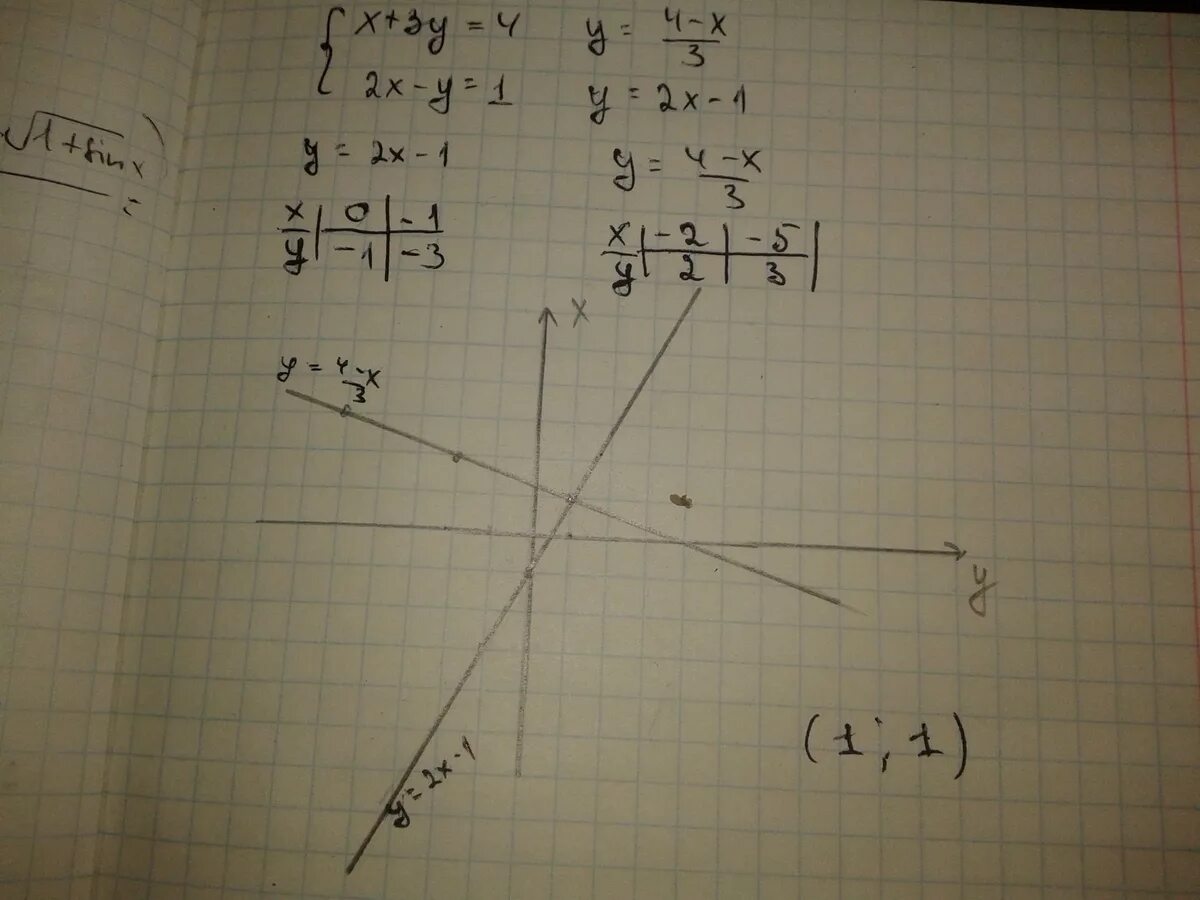 x+3y=4 y = 4-x/3
2x-y=1 y = 2x-1
√1+sinx) =
y = 2x-1 y = 4-x/3
x | 0 | -1
y | -1 | -3
x | -2 | -5 |
y | 2 | 3 |
x
y = 4-x/3
y
y=2x-1
(1;1)